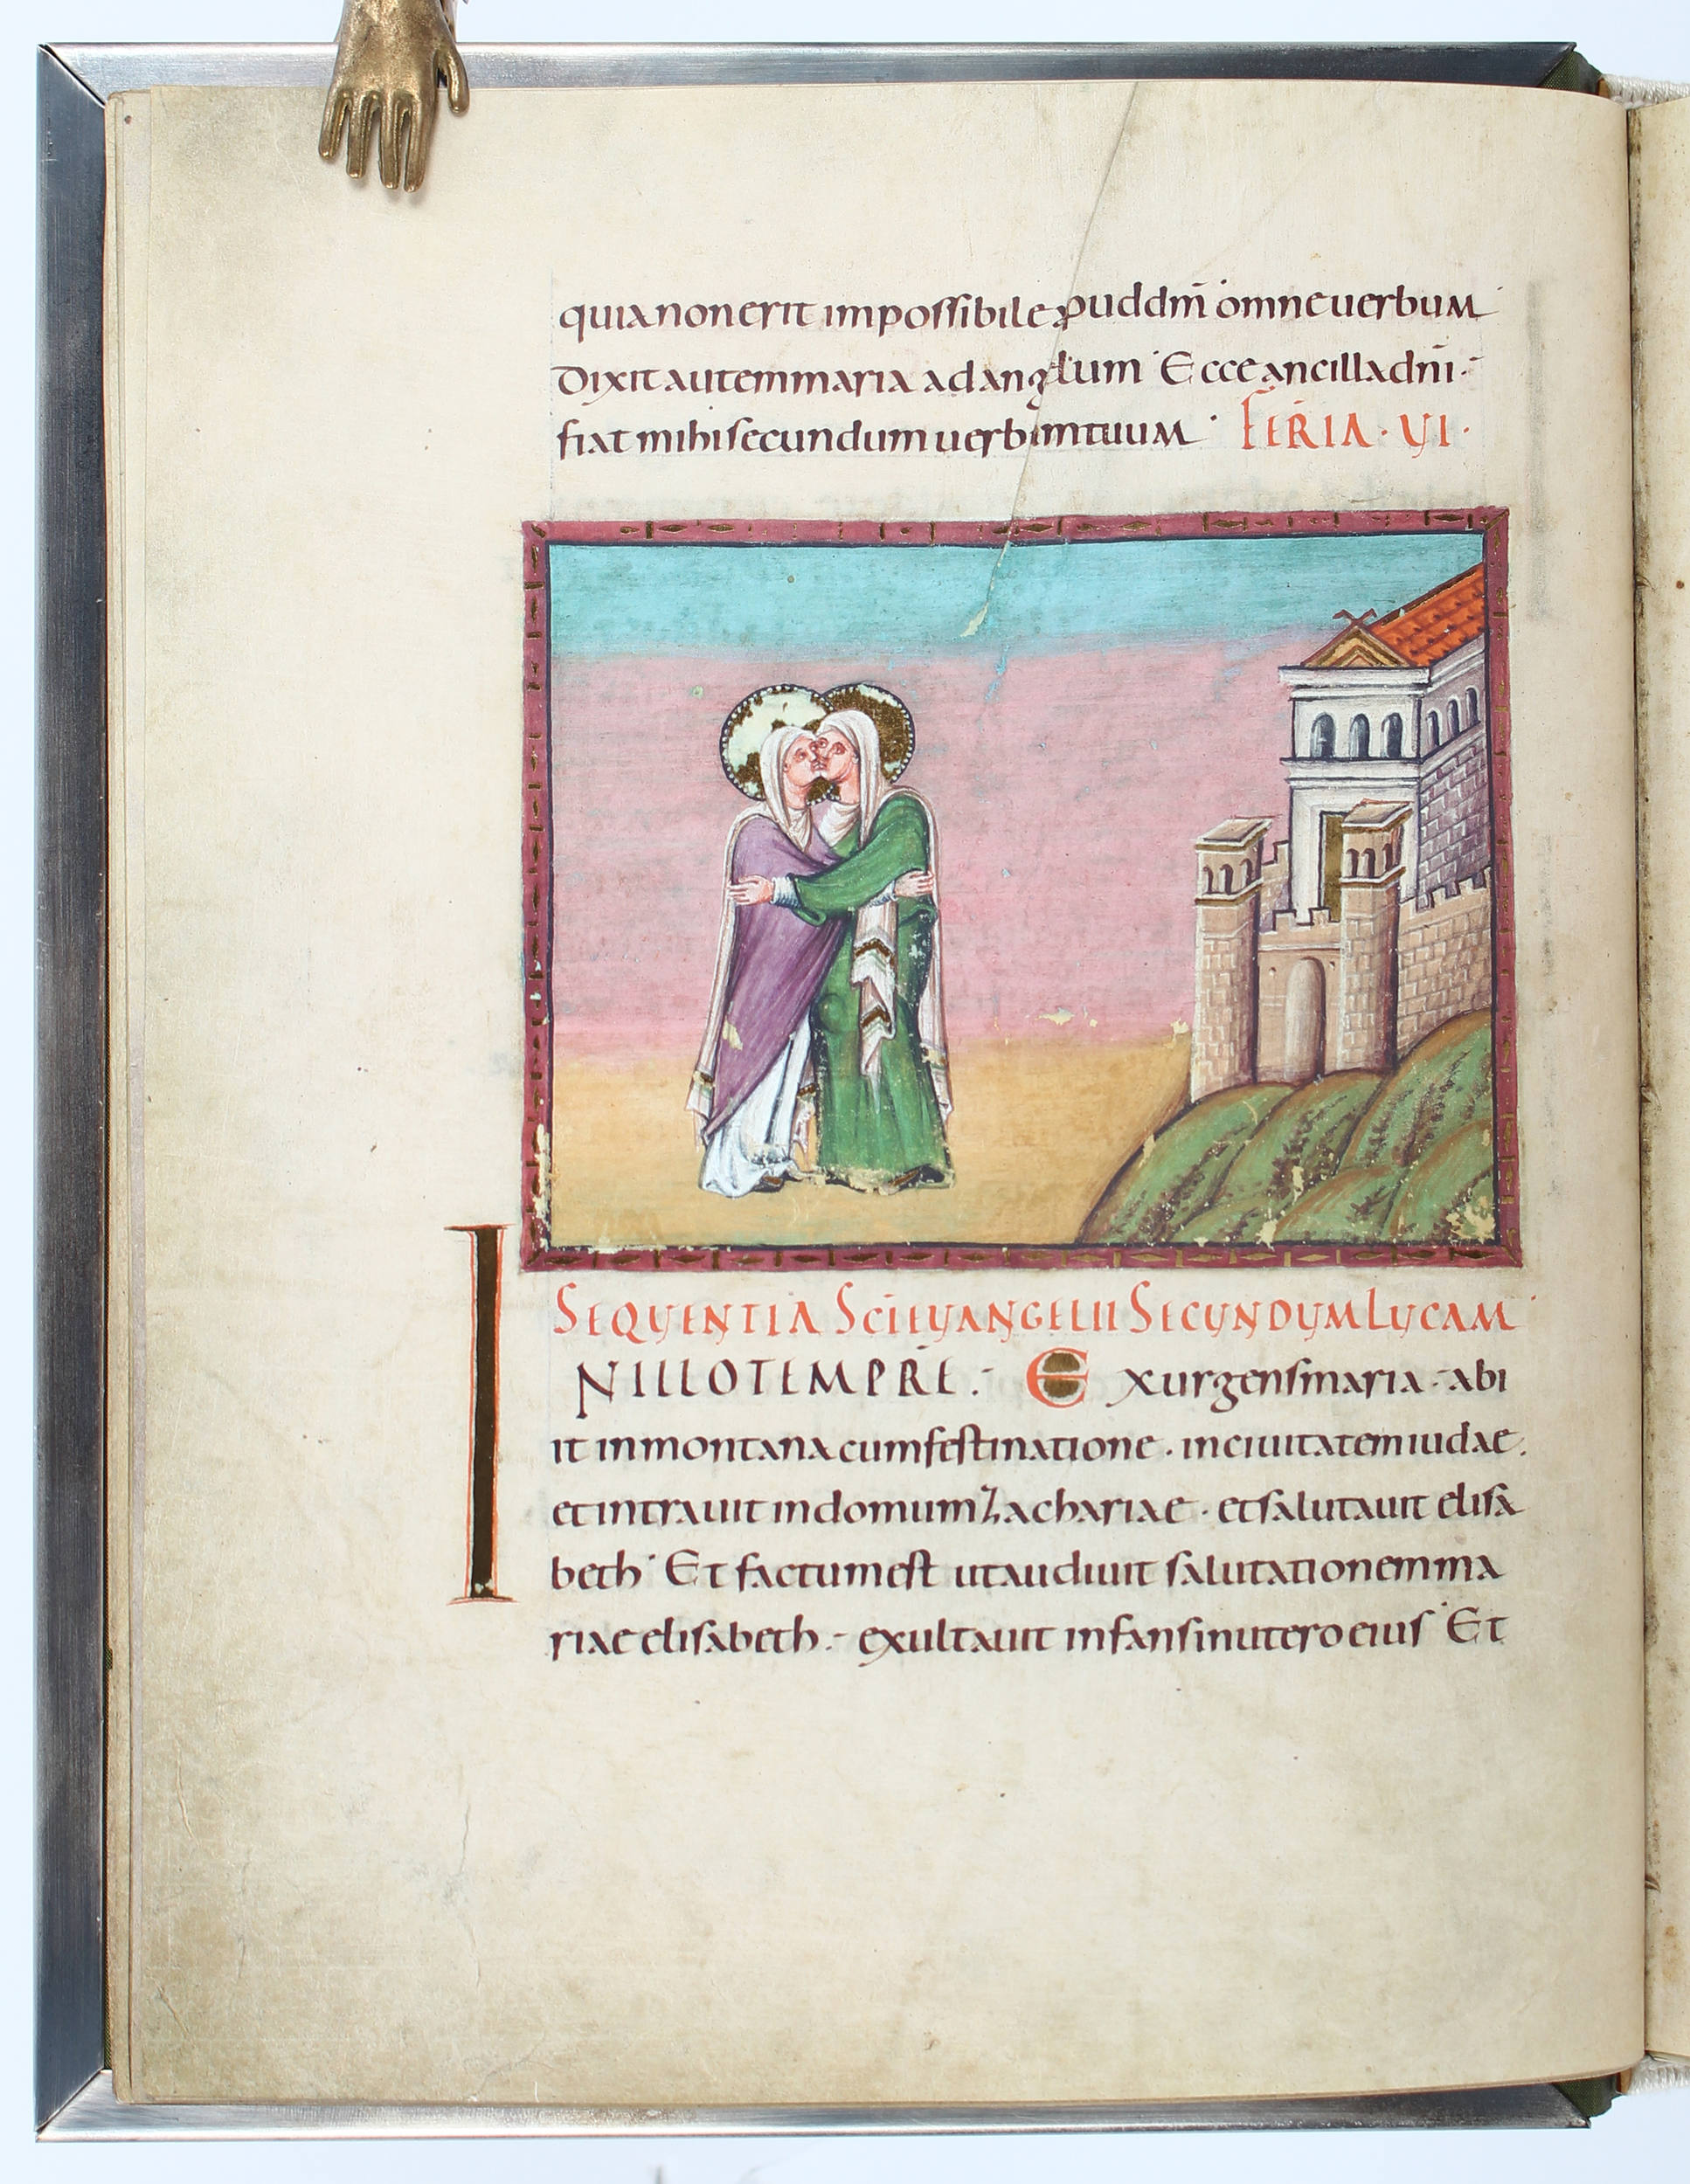 quia non erit impossibile apud dm̄ omne uerbum
Dixit autem maria ad anglum · Ecce ancilla dn̄i ·
fiat mihi secundum uerbum tuum · FERIA · VI ·
SEQVENTIA SC̄I EVANGELII SECVNDVM LVCAM
IN ILLO TEMPR̄E · Exurgens maria · abi
it in montana cum festinatione · in ciuitatem iudae ·
et intrauit in domum Zachariae · et salutauit elisa
beth · Et factum est ut audiuit salutationem ma
riae elisabeth · exultauit infans in utero eius · Et